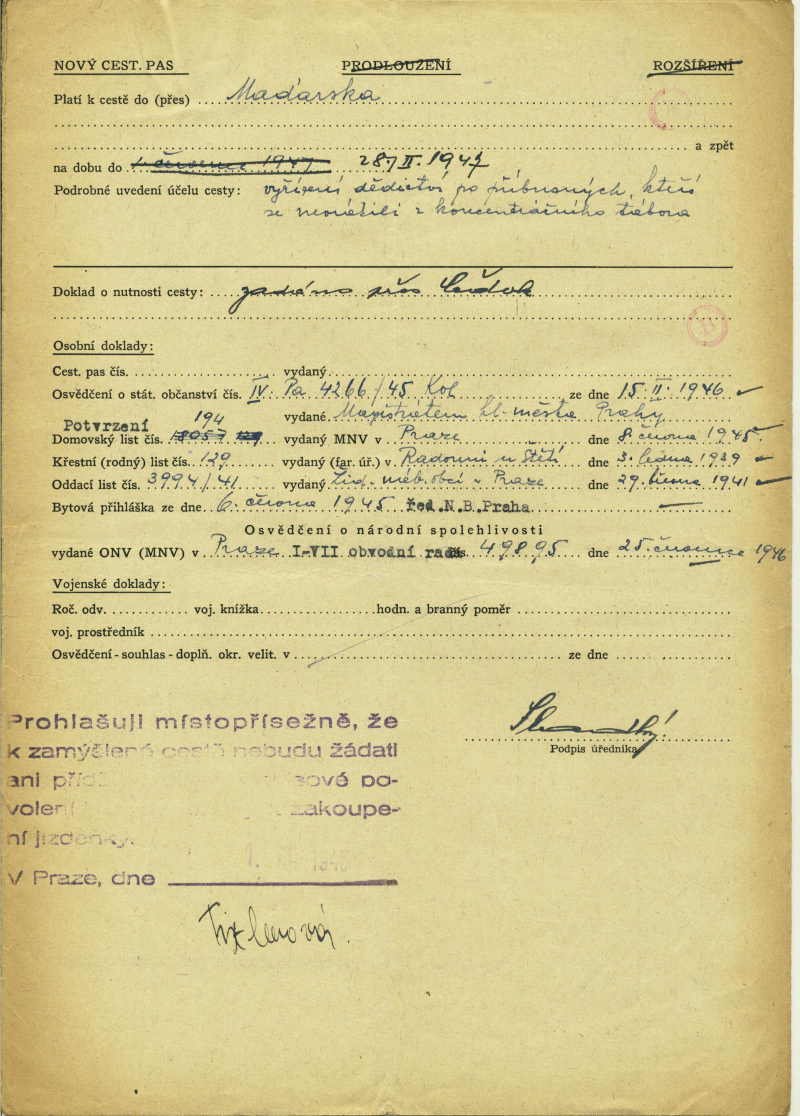 NOVÝ CEST. PAS PRODLOUŽENÍ ROZŠÍŘENÍ
Platí k cestě do (přes) Maďarska
a zpět
na dobu do 1. července 1947 28/II. 1947
Podrobné uvedení účelu cesty: vyřízení dědictví po příbuzných, kteří
se nevrátili z koncentračního tábora
Doklad o nutnosti cesty: zadáno přes Čedok
Osobní doklady:
Cest. pas čís. vydaný
Osvědčení o stát. občanství čís. IV. Pa 4266/45 Kol ze dne 15. II. 1946
vydané Magistrátem hl. města Prahy
Potvrzení 194
Domovský list čís. vydaný MNV v Praze dne 8. června 1945.
Křestní (rodný) list čís. 139 vydaný (far. úř.) v Radouni u Štětí dne 3. ledna 1939
Oddací list čís. 3994/41 vydaný žid. náb. obci v Praze dne 29. 1941
Bytová přihláška ze dne 6. června 1945 řed.N.B.Praha
Osvědčení o národní spolehlivosti
vydané ONV (MNV) v Praze I-VII obvodní rada 49895 dne 25. července 1946
Vojenské doklady:
Roč. odv. voj. knížka hodn. a branný poměr
voj. prostředník
Osvědčení - souhlas - doplň. okr. velit. v ze dne
Podpis úředníka
Prohlašuji místopřísežně, že
k zamýšlené cestě nebudu žádati
ani po-
zakoupe-
ní jízdenky.
V Praze, dne